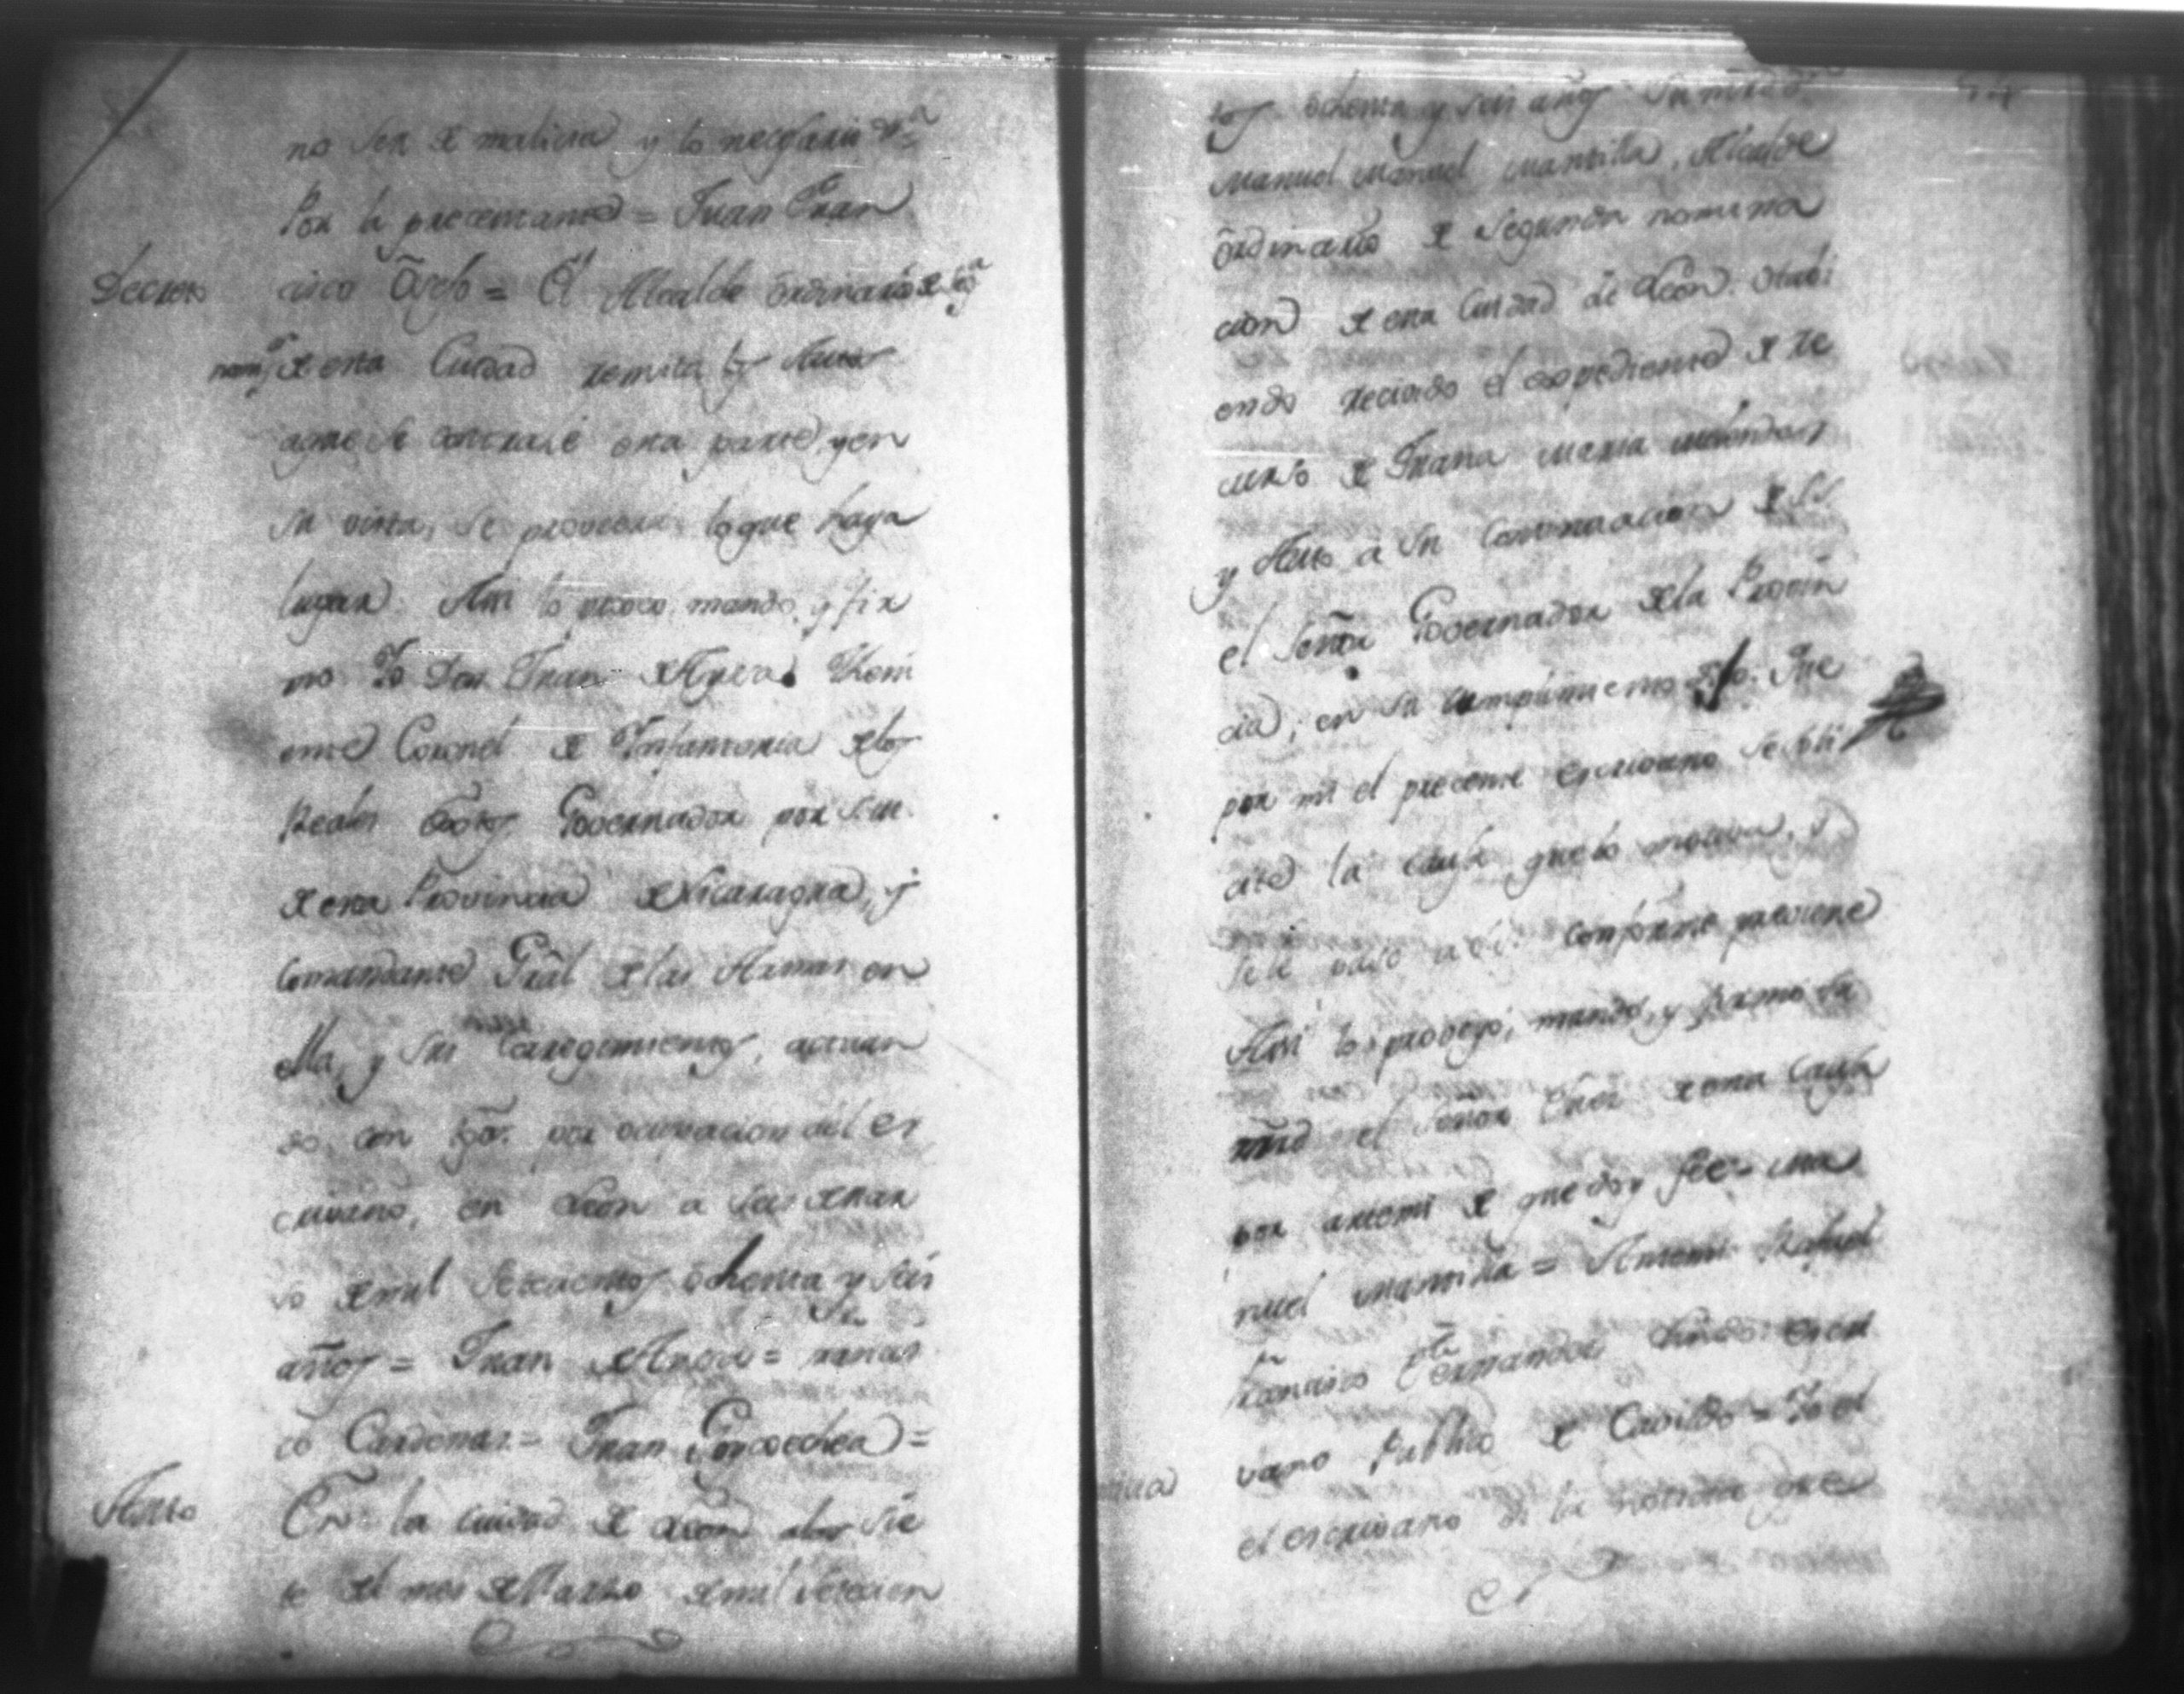 no ser de malicia y lo necesario
Por la precentante = Juan Fran
Decreto
cisco = El Alcalde ordinario de
nom.s de esta Ciudad remita los Autos
aque se contrahe esta parte, y en
su vista, se proveerá lo que haya
lugar. Asi lo proveo, mando, y fir
mo Yo Don Juan de Ayssa Theni
ente Coronel de Ynfanteria delos
Reales Governador por S. M.
de esta Provincia de Nicaragua, y
Comandante Gral delas Armas en
ella, y sus Corregimientos, actuan
do con por ocupacion del es
crivano, en Leon a de Mar
so de mil Setecientos ochenta y seis
años = Juan de Ayssa =
co Cardenas = Juan Goicoechea =
Auto
En la ciudad de Leon alos sie
te del mes de Marzo de mil Setecien
tos ochenta y seis años
Manuel Mantilla, Alcalde
ordinario de segunda nomina
cion de esta Ciudad de Leon
endo recivido el expediente de re
curso de Juana Maria Melendes
y Auto a su continuacion de S.S.
el Señor Governador dela Provin
cia; en su cumplimiento Que
por mi el precente escrivano se soli
cite la causa que lo motiva, y
se le pase a S.S. conforme previene
Asi lo proveyó, mandó, y firmó su
mrd el Señor Jues de esta Causa
por antemi de que doy fee = Ma
nuel Mantilla = Antemi Rafael
Francisco Fernandez Escri
vano Publico de Cavildo = Yo el
el escrivano di la noticia que